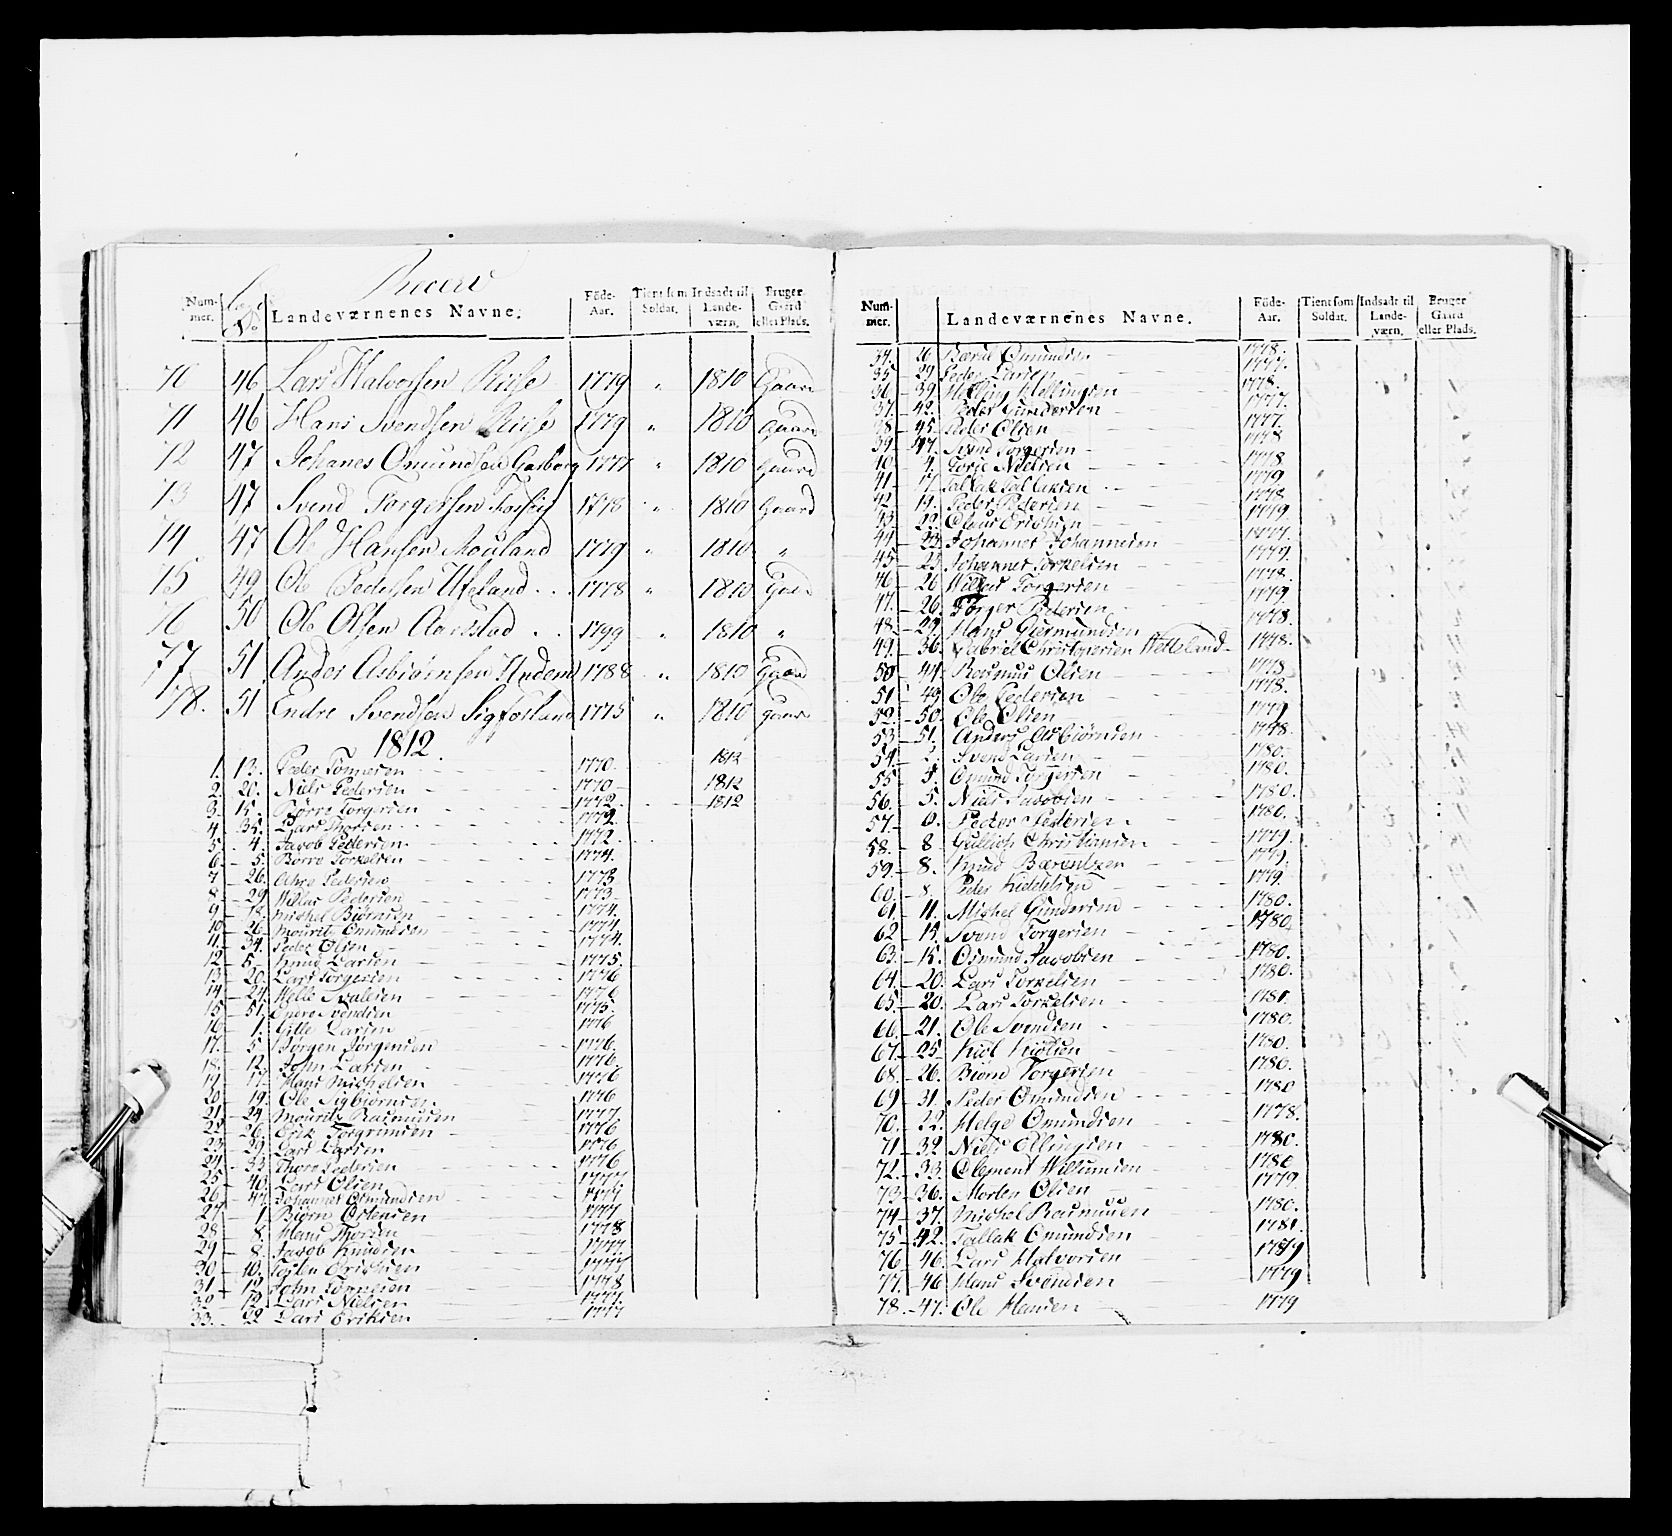 Nummer. Læg No Landeværnenes Navne. Föde-Aar. Tient som Soldat. Indsadt til Landeværn. Bruger Gaard eller Plads.
70 46 Lars Halvorsen 1779 " 1810 Gaard
71 46 Hans Svendsen 1779 " 1810 Gaard
72 47 Johanes Omundsen 1777 " 1810 Gaard
73 47 Svend Torgersen 1778 " 1810 Gaard
74 47 Ole Hansen 1779 " 1810 "
75 49 Ole Pedersen Ueland 1778 " 1810 Gaard
76 50 Ole Olsen Aarstad 1799 " 1810 "
77 51 Ander Asbiørnsen 1788 " 1810 Gaard
78. 51 Endre Svendsen 1775 " 1810 Gaard
1812.
1. 13. Peder Tønnesen 1770. 1812
2. 20. Niels Pedersen 1770 1812
3. 15. Børre Torgersen 1772. 1812
4. 35. Lars Thorsen 1772.
5. 4. Jacob Pedersen 1772.
6 5. Børre Torkelsen 1774.
7 26. Pedersen 1773
8. 29 Pedersen 1773
9 18. Michel Biørnsen 1774.
10 26 Mourits Omundsen 1774
11. 34. Peder Olsen 1774.
12 5. Knud Larsen 1775.
13. 20. Lars Torgersen 1776
14 24. Svalesen 1776
15 51. Svendsen 1775.
16 1. Gitle Larsen 1776
17. 5. Jørgen Jørgensen 1776.
18. 12. John Larsen 1776.
19 17. Hans Michelsen 1776
20 19. Ole Sigbiørnsen 1776
21 24. Mourits Rasmussen 1777.
22 26. Erik 1776
23 29. Lars Larsen 1776.
24 33. Thore Pedersen 1776
25 40. Lars Olsen 1777.
26 47. Johannes Osmundsen 1777
27 1. Biørn Ostensen 1777
28 8. Hans Thorsen 1778
29 8. Jacob Knudsen 1777.
30 10. Tosten Erichsen 1777
31. 12. John Tønnesen 1778
32 12. Lars Nielsen 1777.
33. 22 Lars Eriksen 1777
Nummer. Landeværnenes Navne. Föde-Aar. Tient som Soldat. Indsadt til Landeværn. Bruger Gaard eller Plads.
34. 26 Omundsen 1778.
35 29 Peder Larsen 1777.
36 39. 1778.
37. 42. Peder Gundersen 1777.
38 45. Peder Olsen 1777.
39 47. Svend Torgersen 1778
40 4. Torje Nielsen 1778
41 17. Tallak Tallaksen 1779
42. 19. Peder Pedersen 1778
43. 22. Claus Erichsen 1779
44 23 Johannes Johannesen 1777.
45 25. Johannes Torkelsen 1779.
46 26 Torgersen 1778.
47. 26. Torger Pedersen 1779
48. 29. Hans Giermundsen 1778.
49. 36. Gabriel Christophersen Vetteland 1778.
50 44. Rasmus Olsen 1778
51 49 Ole Pedersen 1778.
52 50. Ole Olsen 1779
53 51. Anders Asbiørnsen 1778.
54. Svend Larsen 1780.
55 5. Omund Torgersen 1780.
56. 5. Niels Jacobsen 1780.
57. 6. Peder Pedersen 1780.
58. 8 Gullich Christiansen 1779.
59. 8. Knud Bærentzen 1779.
60. 8. Peder Kieldsen 1779.
61. 11. Michel Gundersen 1780.
62 15. Svend Torgersen 1780.
63. 15. Osmund Jacobsen 1780.
64. 20. Lars Torkelsen 1780.
65. 20. Lars Torkelsen 1781.
66. 21. Ole Svendsen 1780.
67. 25. 1780.
68. 26. Biørn Torgersen 1780.
69 31. Peder Omundsen 1780
70. 22. Helge Omundsen 1778.
71 32 Niels Ellingsen 1780.
72. 33. Clement Villumsen 1780
73 36. Morten Olsen 1779
74 37. Michel Rasmusen 1780.
75 42. Tallak Omundsen 1781.
76 46. Lars Halvorsen 1779
77. 46 Hans Svendsen 1779
78. 47. Ole Hansen 1779